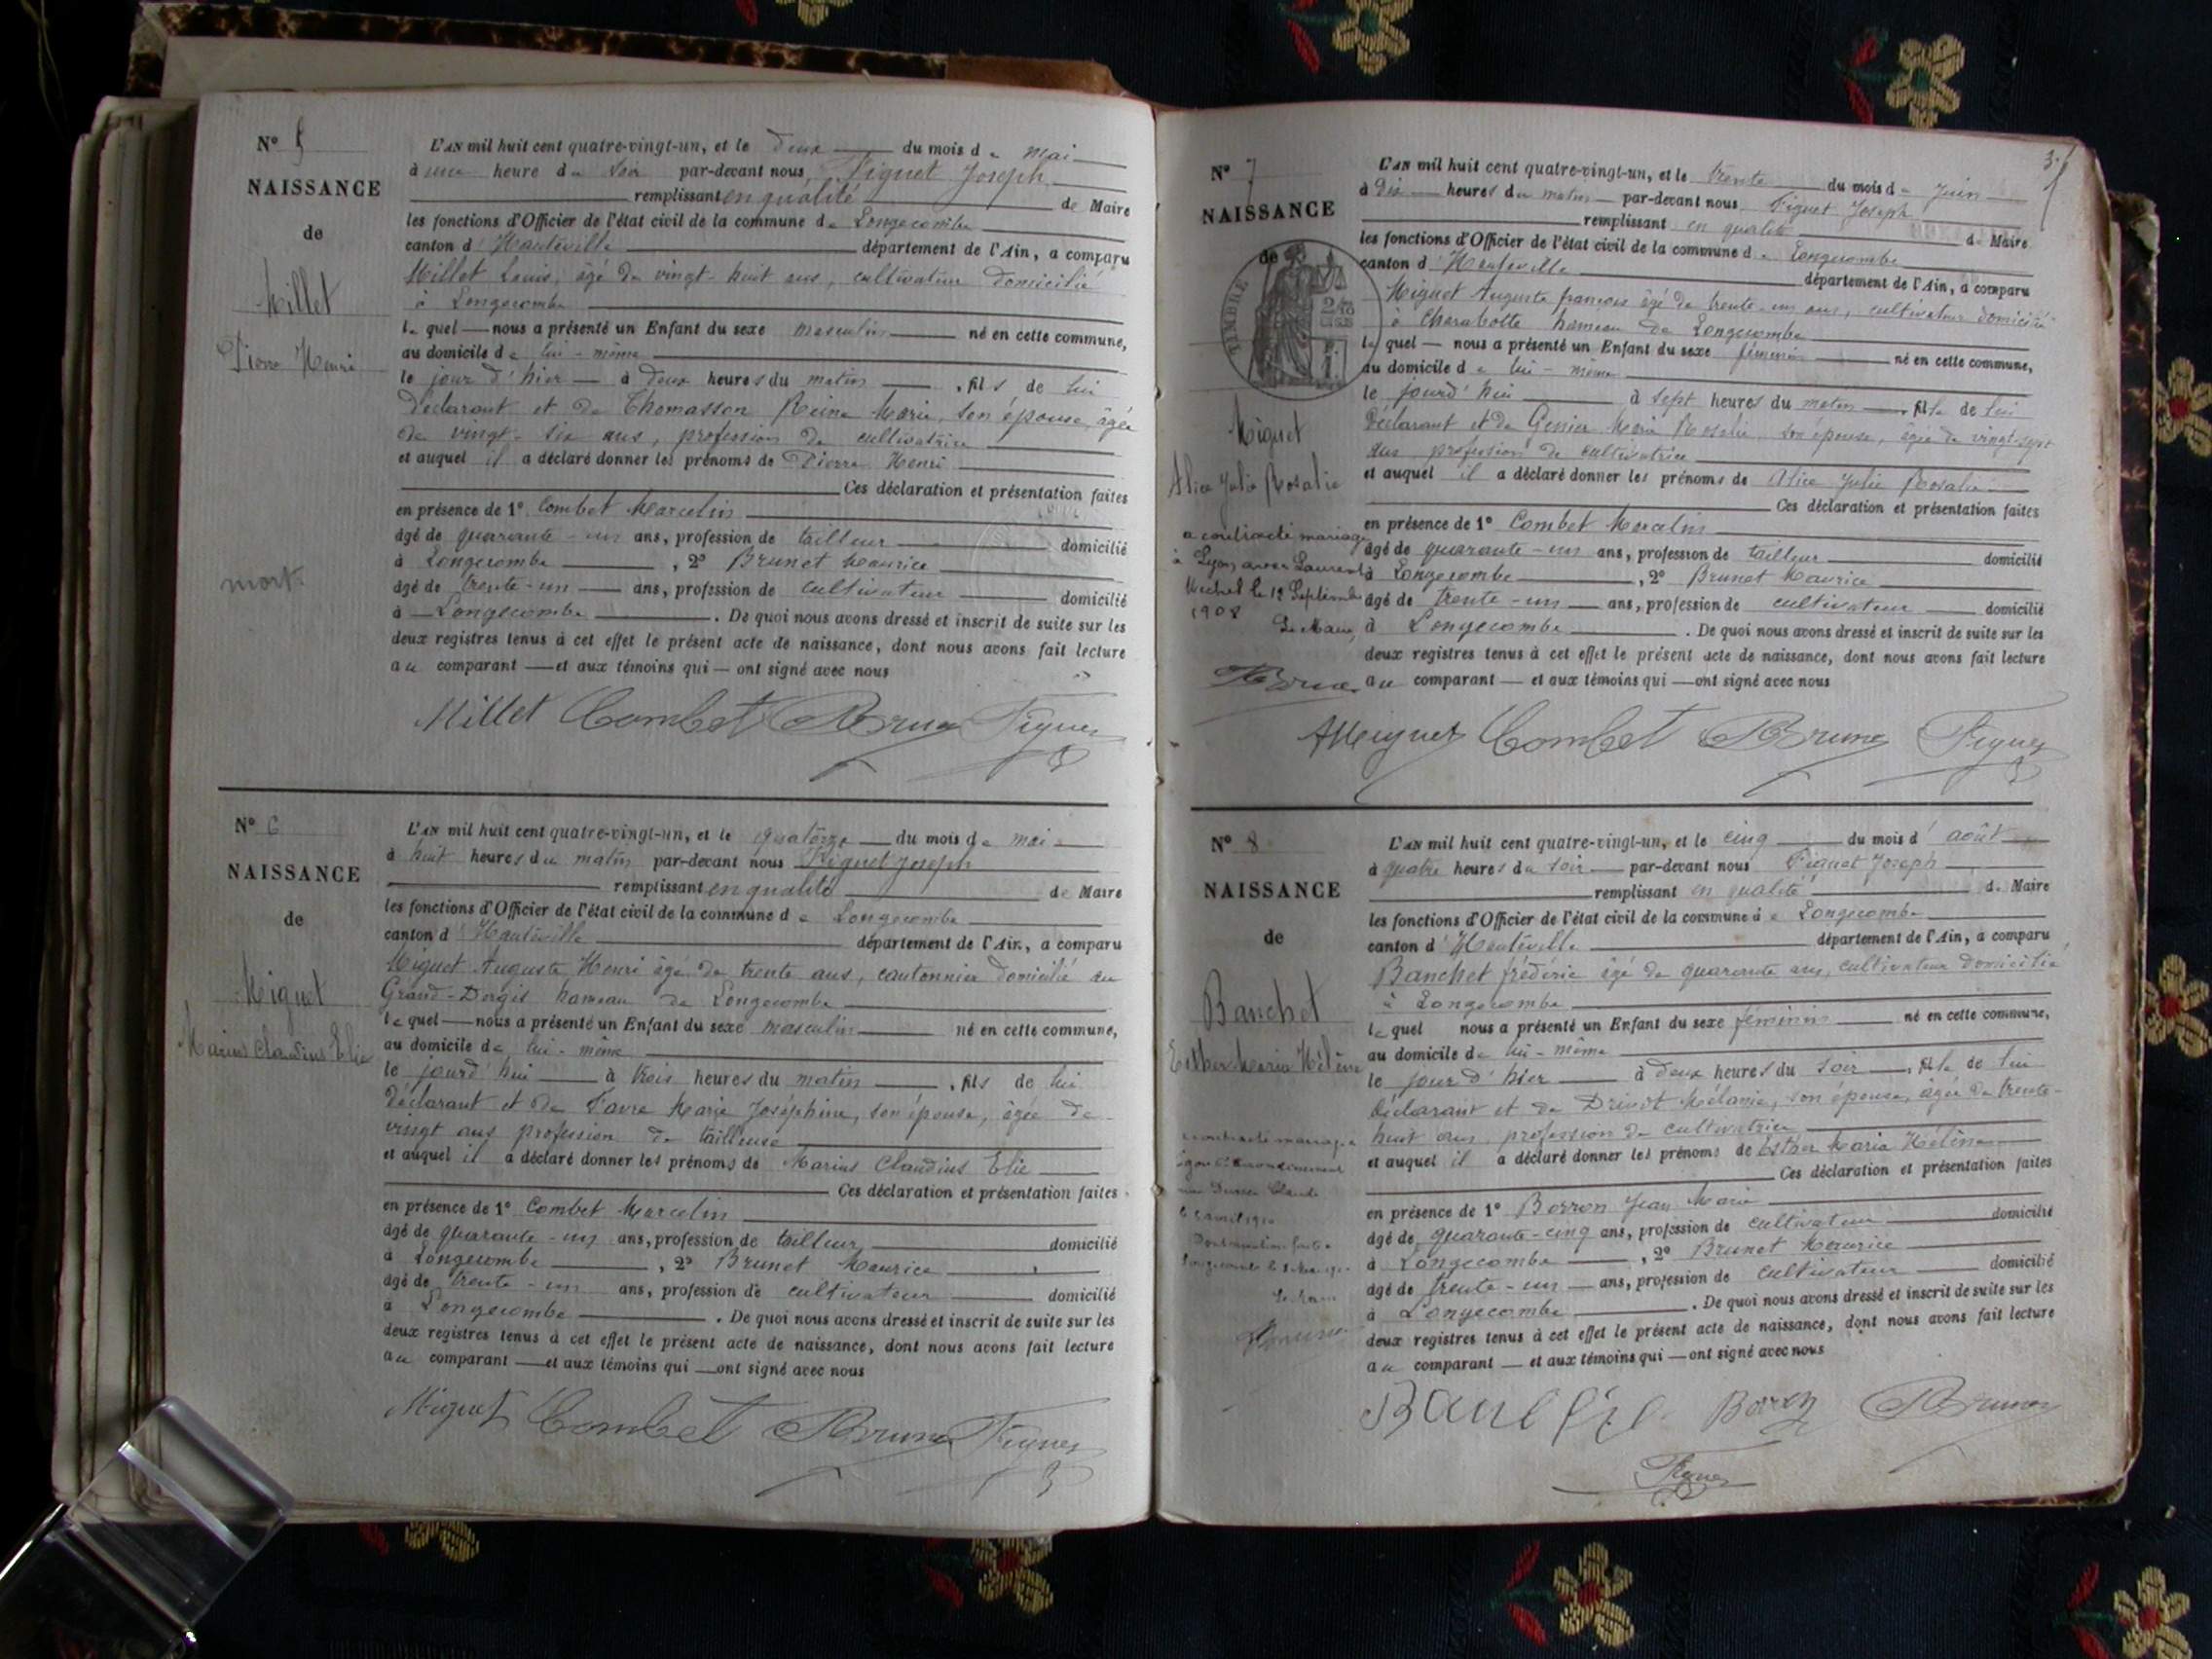 N° 5
NAISSANCE
de
Millet
Pierre Henri
mort
L'AN mil huit cent quatre-vingt-un, et le deux du mois de mai
à une heure du soir par-devant nous Figuet Joseph
remplissant en qualité de Maire
les fonctions d'Officier de l'état civil de la commune de Longecombe
canton d'Hauteville département de l'Ain, a comparu
Millet Louis, âgé de vingt-huit ans, cultivateur domicilié
à Longecombe
lequel nous a présenté un Enfant du sexe masculin né en cette commune,
au domicile de lui-même
le jour d'hier à deux heures du matin, fils de lui
déclarant et de Thomasson Reine Marie, son épouse, âgée
de vingt-six ans, profession de cultivatrice
et auquel il a déclaré donner les prénoms de Pierre Henri
Ces déclaration et présentation faites
en présence de 1° Combet Marcelin
âgé de quarante-un ans, profession de tailleur domicilié
à Longecombe, 2° Brunet Maurice
âgé de trente-un ans, profession de cultivateur domicilié
à Longecombe. De quoi nous avons dressé et inscrit de suite sur les
deux registres tenus à cet effet le présent acte de naissance, dont nous avons fait lecture
au comparant et aux témoins qui ont signé avec nous
Millet Combet Brunet Figuet
N° 6
NAISSANCE
de
Miguet
Marius Claudius Elie
L'AN mil huit cent quatre-vingt-un, et le quatorze du mois de mai
à huit heures du matin par-devant nous Figuet Joseph
remplissant en qualité de Maire
les fonctions d'Officier de l'état civil de la commune de Longecombe
canton d'Hauteville département de l'Ain, a comparu
Miguet Auguste Henri âgé de trente ans, cantonnier domicilié au
Grand-Dergis hameau de Longecombe
lequel nous a présenté un Enfant du sexe masculin né en cette commune,
au domicile de lui-même
le jourd'hui à trois heures du matin, fils de lui
déclarant et de Favre Marie Joséphine, son épouse, âgée de
vingt ans profession de tailleuse
et auquel il a déclaré donner les prénoms de Marius Claudius Elie
Ces déclaration et présentation faites
en présence de 1° Combet Marcelin
âgé de quarante-un ans, profession de tailleur domicilié
à Longecombe, 2° Brunet Maurice
âgé de trente-un ans, profession de cultivateur domicilié
à Longecombe. De quoi nous avons dressé et inscrit de suite sur les
deux registres tenus à cet effet le présent acte de naissance, dont nous avons fait lecture
au comparant et aux témoins qui ont signé avec nous
Miguet Combet Brunet Figuet
3
N° 7
NAISSANCE
de
TIMBRE
Miguet
Alice Julie Rosalie
a contracté mariage
à Lyon avec Laurent
Michel le 12 Septembre
1908
Le Maire,
Brunet
L'AN mil huit cent quatre-vingt-un, et le trente du mois de Juin
à dix heures du matin par-devant nous Figuet Joseph
remplissant en qualité de Maire
les fonctions d'Officier de l'état civil de la commune de Longecombe
canton d'Hauteville département de l'Ain, a comparu
Miguet Auguste françois âgé de trente-un ans, cultivateur domicilié
à Charabotte hameau de Longecombe
lequel nous a présenté un Enfant du sexe féminin né en cette commune,
au domicile de lui-même
le jourd'hui à sept heures du matin, fille de lui
déclarant et de Genier Marie Rosalie, son épouse, âgée de vingt-sept
ans profession de cultivatrice
et auquel il a déclaré donner les prénoms de Alice Julie Rosalie
Ces déclaration et présentation faites
en présence de 1° Combet Marcelin
âgé de quarante-un ans, profession de tailleur domicilié
à Longecombe, 2° Brunet Maurice
âgé de trente-un ans, profession de cultivateur domicilié
à Longecombe. De quoi nous avons dressé et inscrit de suite sur les
deux registres tenus à cet effet le présent acte de naissance, dont nous avons fait lecture
au comparant et aux témoins qui ont signé avec nous
AMiguet Combet Brunet Figuet
N° 8
NAISSANCE
de
Banchet
Esther Maria Hélène
a contracté mariage
Claude
le 5 avril 1910
Brunet
L'AN mil huit cent quatre-vingt-un, et le cinq du mois d'août
à quatre heures du soir par-devant nous Figuet Joseph
remplissant en qualité de Maire
les fonctions d'Officier de l'état civil de la commune de Longecombe
canton d'Hauteville département de l'Ain, a comparu
Banchet frédéric âgé de quarante ans, cultivateur domicilié
à Longecombe
lequel nous a présenté un Enfant du sexe féminin né en cette commune,
au domicile de lui-même
le jour d'hier à deux heures du soir, fille de lui
déclarant et de Drivot Mélanie, son épouse, âgée de trente-
huit ans, profession de cultivatrice
et auquel il a déclaré donner les prénoms de Esther Maria Hélène
Ces déclaration et présentation faites
en présence de 1° Borron Jean Marie
âgé de quarante-cinq ans, profession de cultivateur domicilié
à Longecombe, 2° Brunet Maurice
âgé de trente-un ans, profession de cultivateur domicilié
à Longecombe. De quoi nous avons dressé et inscrit de suite sur les
deux registres tenus à cet effet le présent acte de naissance, dont nous avons fait lecture
au comparant et aux témoins qui ont signé avec nous
Borron Brunet
Figuet